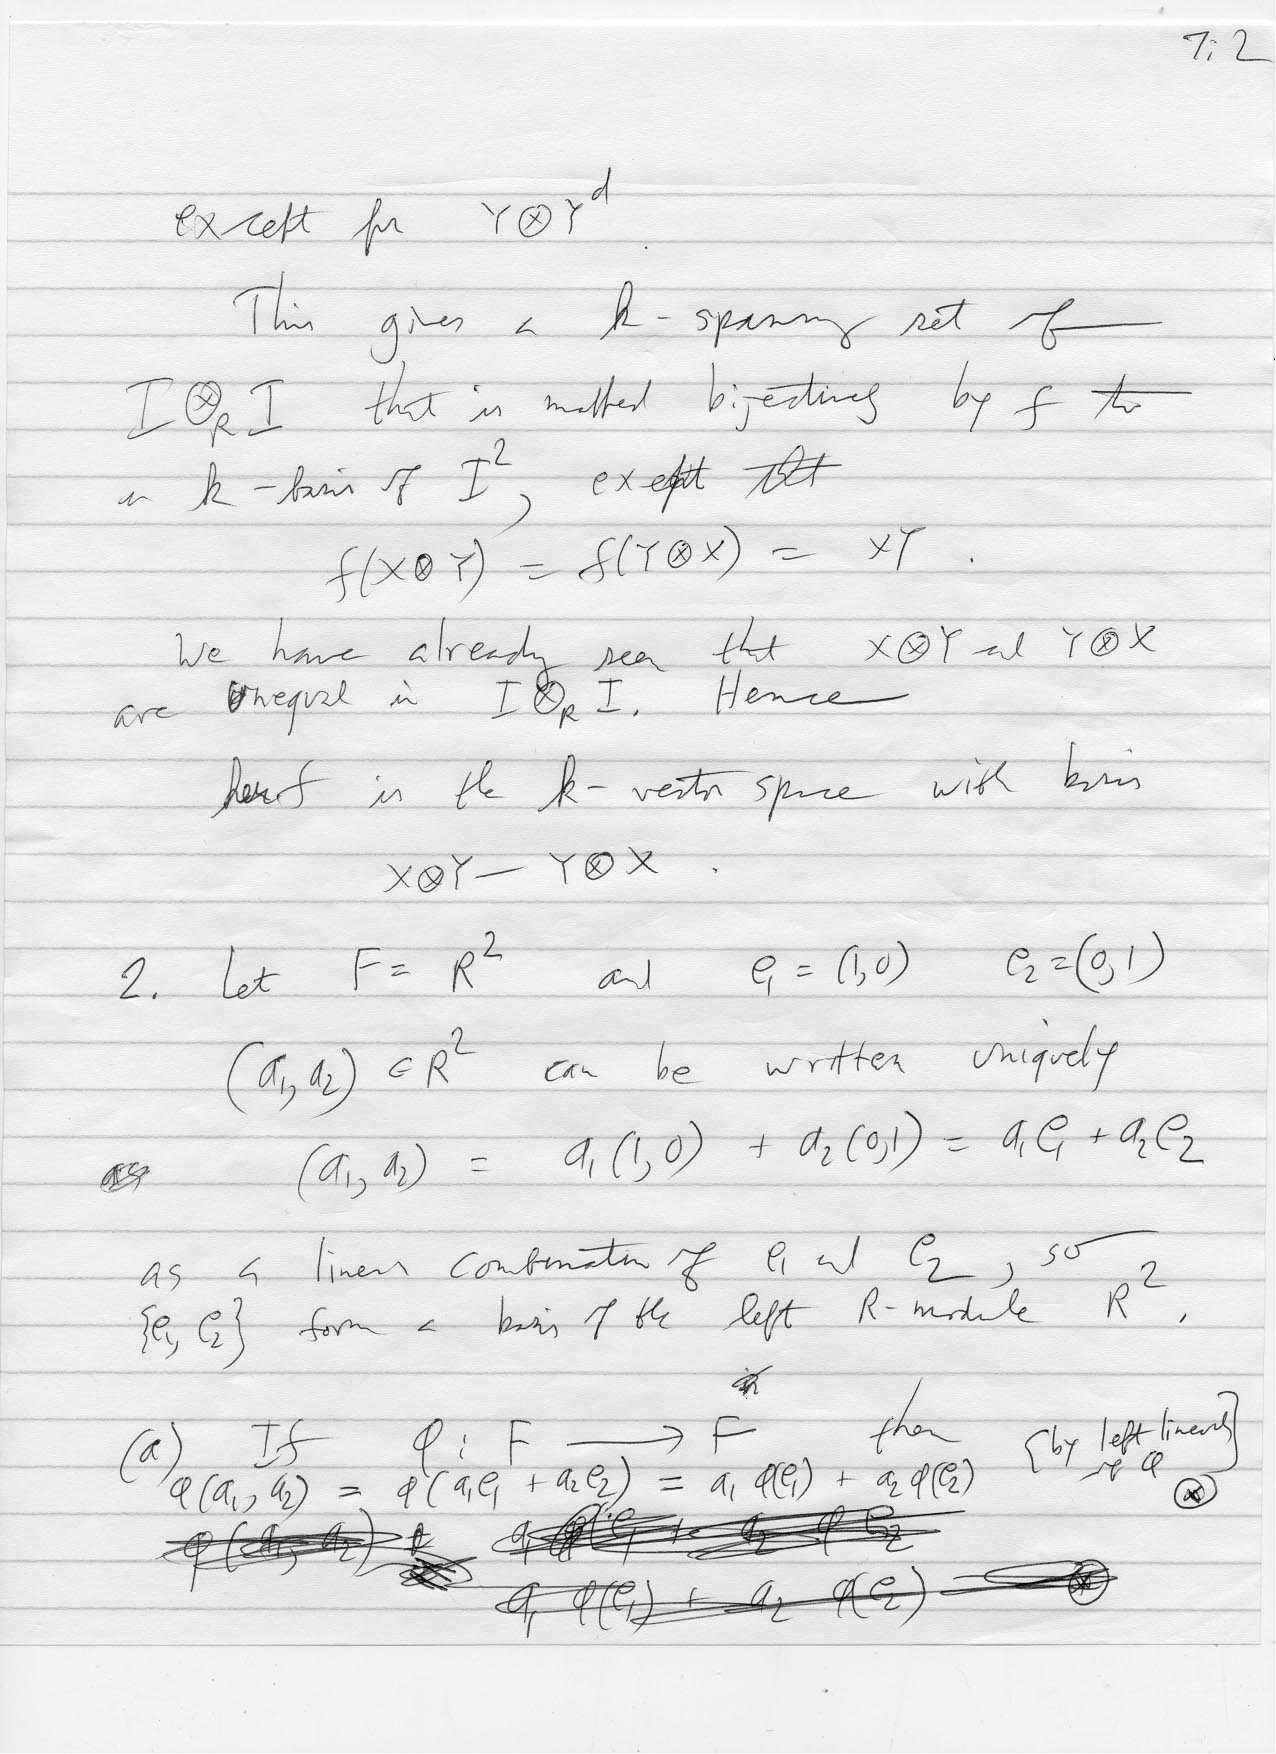 7:2
except for Y⊗Y^d.
This gives a k-spanning set of
I⊗_R I that is mapped bijectively by f to
a k-basis of I^2, except that
f(X⊗Y) = f(Y⊗X) = XY.
We have already seen that X⊗Y and Y⊗X
are unequal in I⊗_R I. Hence
ker f is the k-vector space with basis
X⊗Y − Y⊗X.
2. Let F = R^2 and e_1 = (1,0) e_2 = (0,1)
(a_1, a_2) ∈ R^2 can be written uniquely
(a_1, a_2) = a_1(1,0) + a_2(0,1) = a_1e_1 + a_2e_2
as a linear combination of e_1 and e_2, so
{e_1, e_2} form a basis of the left R-module R^2.
(a) If φ: F → F then {by left linearity of φ}
φ(a_1, a_2) = φ(a_1e_1 + a_2e_2) = a_1φ(e_1) + a_2φ(e_2) ⊛